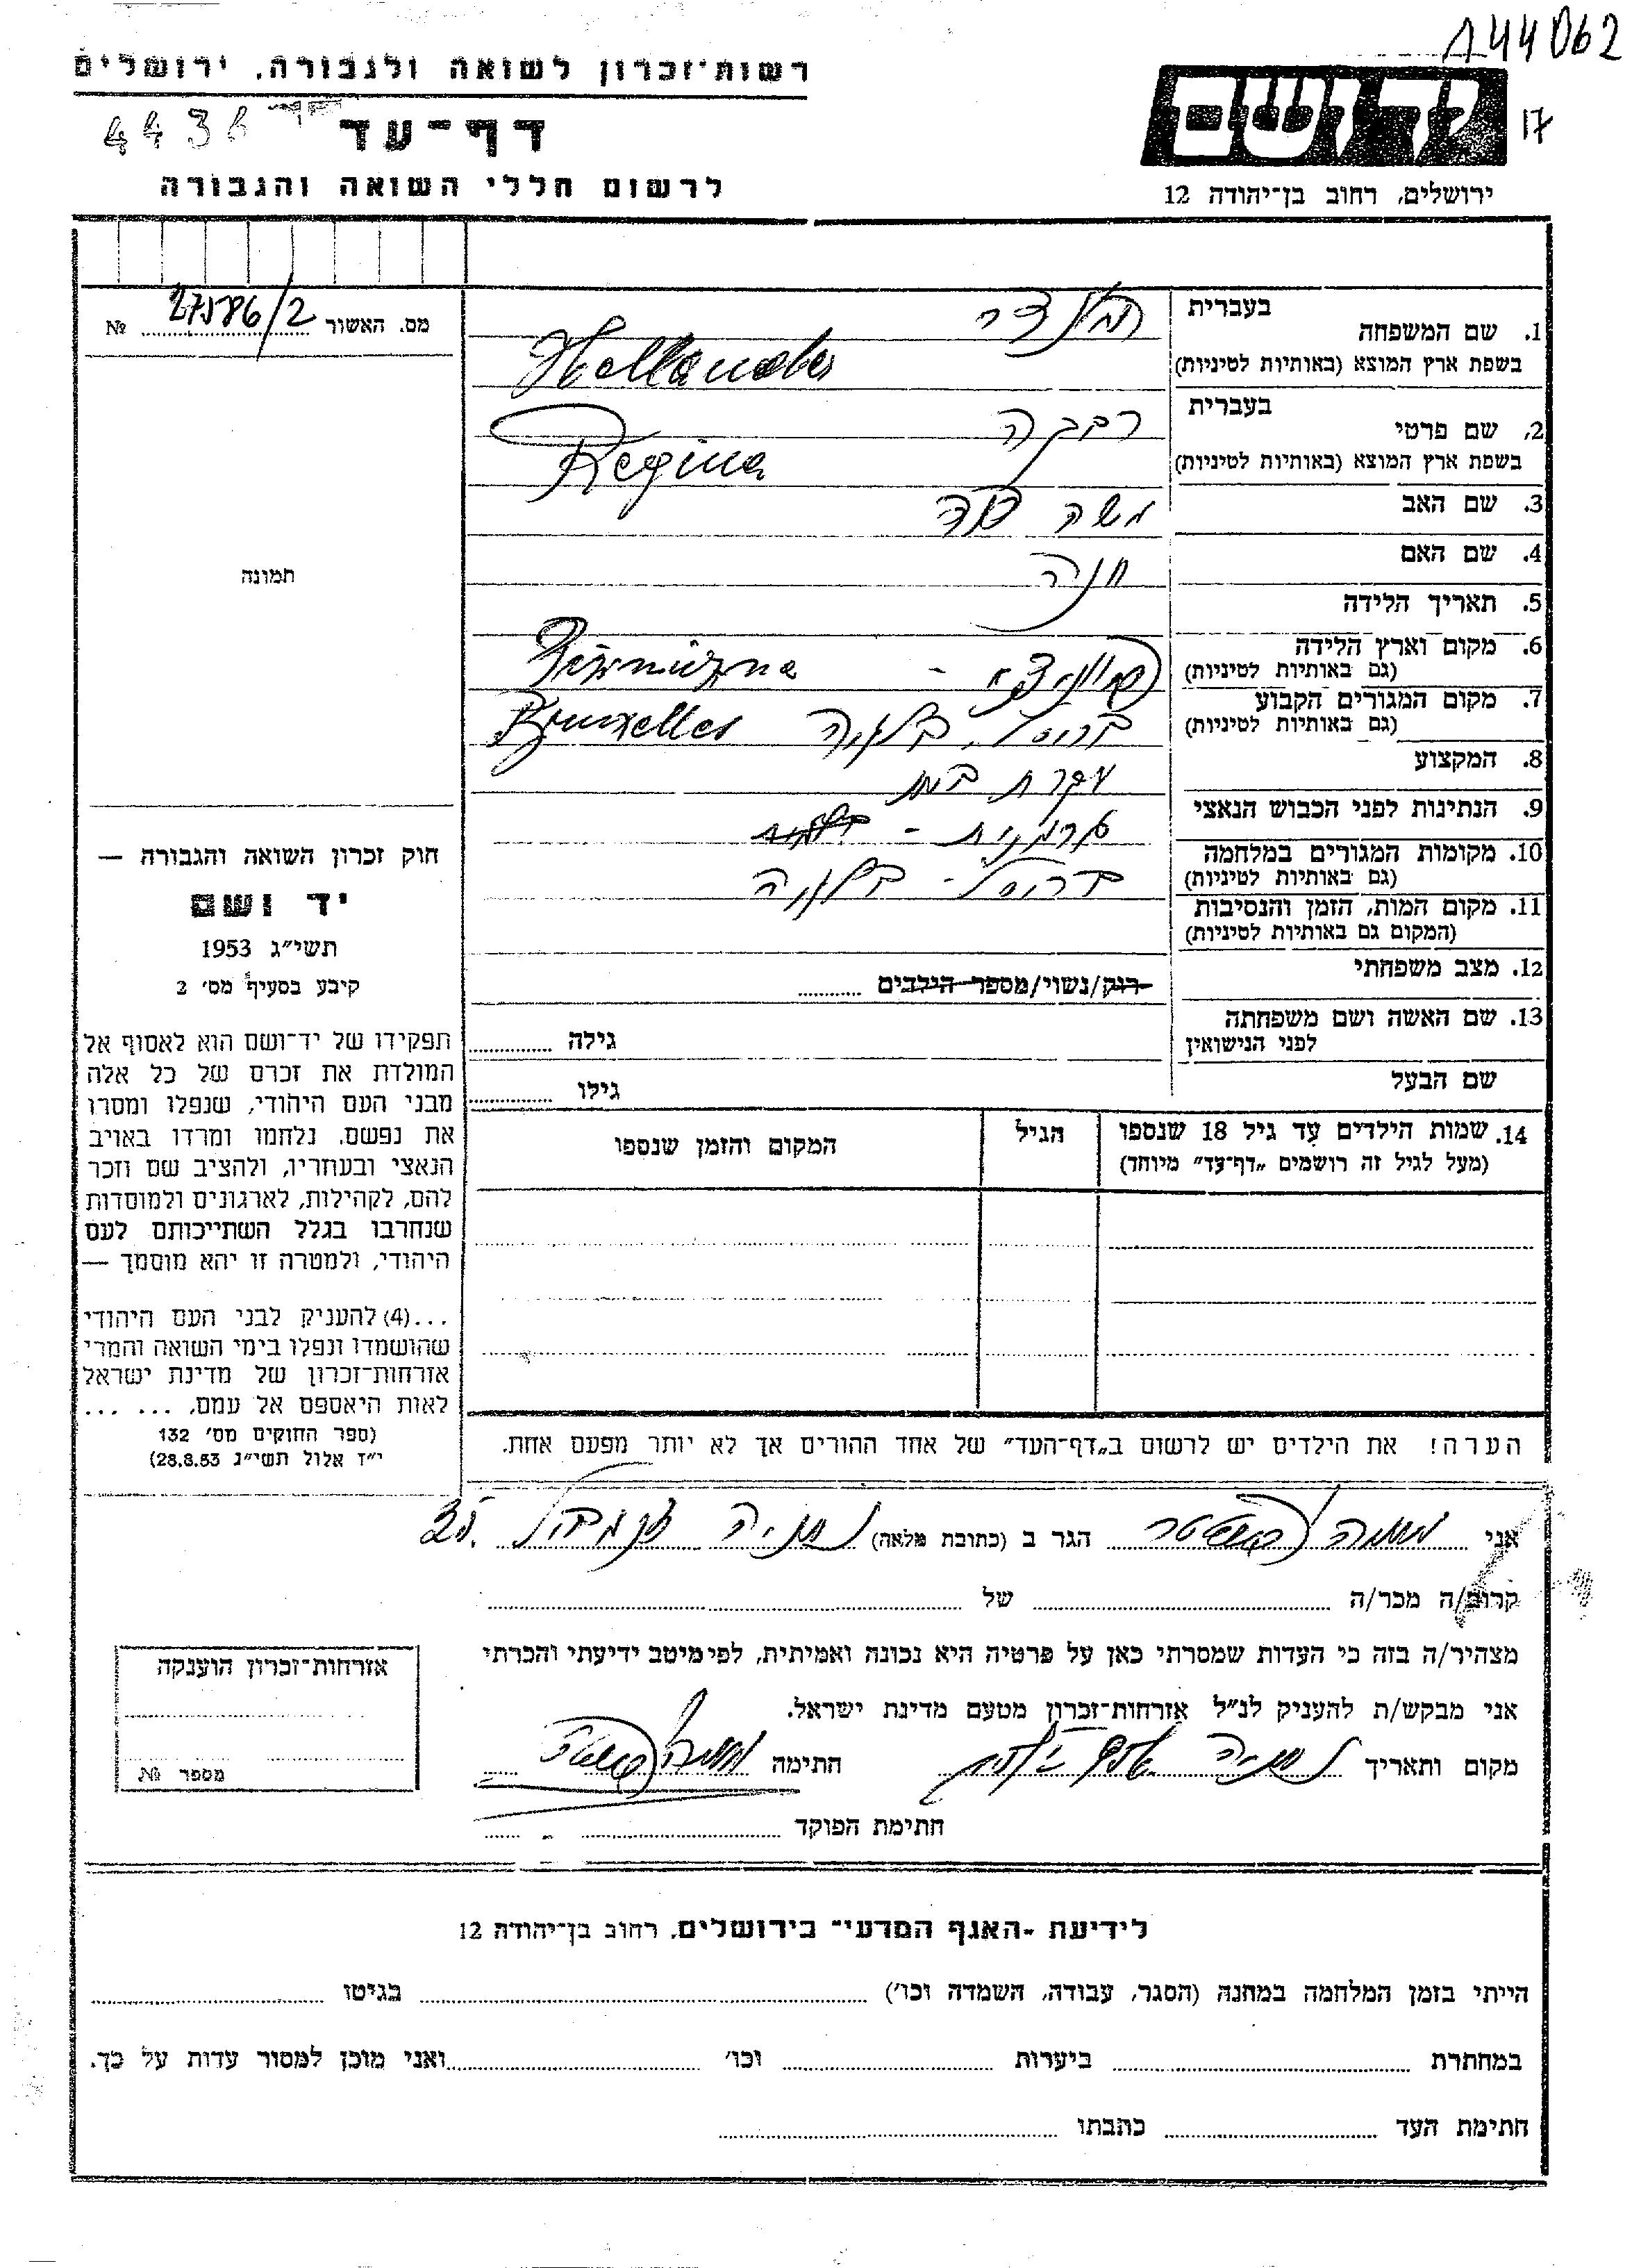 A44062
רשות־זכרון לשואה ולגבורה, ירושלים
יד ושם
17
4436
דף־עד
לרשום חללי השואה והגבורה
ירושלים, רחוב בן־יהודה 12
מס. האשור 27586/2 №
תמונה
1. שם המשפחה
בעברית
הולנדר
בשפת ארץ המוצא (באותיות לטיניות)
Hollander
2. שם פרטי
בעברית
רבקה
בשפת ארץ המוצא (באותיות לטיניות)
Regina
3. שם האב משה דוד
4. שם האם חנה
5. תאריך הלידה
6. מקום וארץ הלידה
(גם באותיות לטיניות)
7. מקום המגורים הקבוע בריסל, בלגיה Bruxelles
(גם באותיות לטיניות)
8. המקצוע עקרת בית
9. הנתינות לפני הכבוש הנאצי
10. מקומות המגורים במלחמה בריסל - בלגיה
(גם באותיות לטיניות)
11. מקום המות, הזמן והנסיבות
(המקום גם באותיות לטיניות)
12. מצב משפחתי
רוק/נשוי/מספר הילדים
13. שם האשה ושם משפחתה
לפני הנישואין
גילה
שם הבעל
גילו
14. שמות הילדים עד גיל 18 שנספו
(מעל לגיל זה רושמים „דף־עד" מיוחד)
הגיל
המקום והזמן שנספו
הערה! את הילדים יש לרשום ב„דף־העד" של אחד ההורים אך לא יותר מפעם אחת.
חוק זכרון השואה והגבורה —
יד ושם
תשי"ג 1953
קיבע בסעיף מס' 2
תפקידו של יד־ושם הוא לאסוף אל
המולדת את זכרם של כל אלה
מבני העם היהודי, שנפלו ומסרו
את נפשם, נלחמו ומרדו באויב
הנאצי ובעוזריו, ולהציב שם וזכר
להם, לקהילות, לארגונים ולמוסדות
שנחרבו בגלל השתייכותם לעם
היהודי, ולמטרה זו יהא מוסמך —
...(4) להעניק לבני העם היהודי
שהושמדו ונפלו בימי השואה והמרי
אזרחות־זכרון של מדינת ישראל
לאות היאספם אל עמם. ... ...
(ספר החוקים מס' 132
י"ז אלול תשי"ג 28.8.53)
אני הגר ב (כתובת מלאה) נתניה
קרוב/ה מכר/ה של
מצהיר/ה בזה כי העדות שמסרתי כאן על פרטיה היא נכונה ואמיתית, לפי מיטב ידיעתי והכרתי
אני מבקש/ת להעניק לנ"ל אזרחות־זכרון מטעם מדינת ישראל.
מקום ותאריך נתניה חתימה
חתימת הפוקד
אזרחות־זכרון הוענקה
מספר №
לידיעת -האגף המדעי- בירושלים, רחוב בן־יהודה 12
הייתי בזמן המלחמה במחנה (הסגר, עבודה, השמדה וכו') בגיטו
במחתרת ביערות וכו' ואני מוכן למסור עדות על כך.
חתימת העד כתבתו